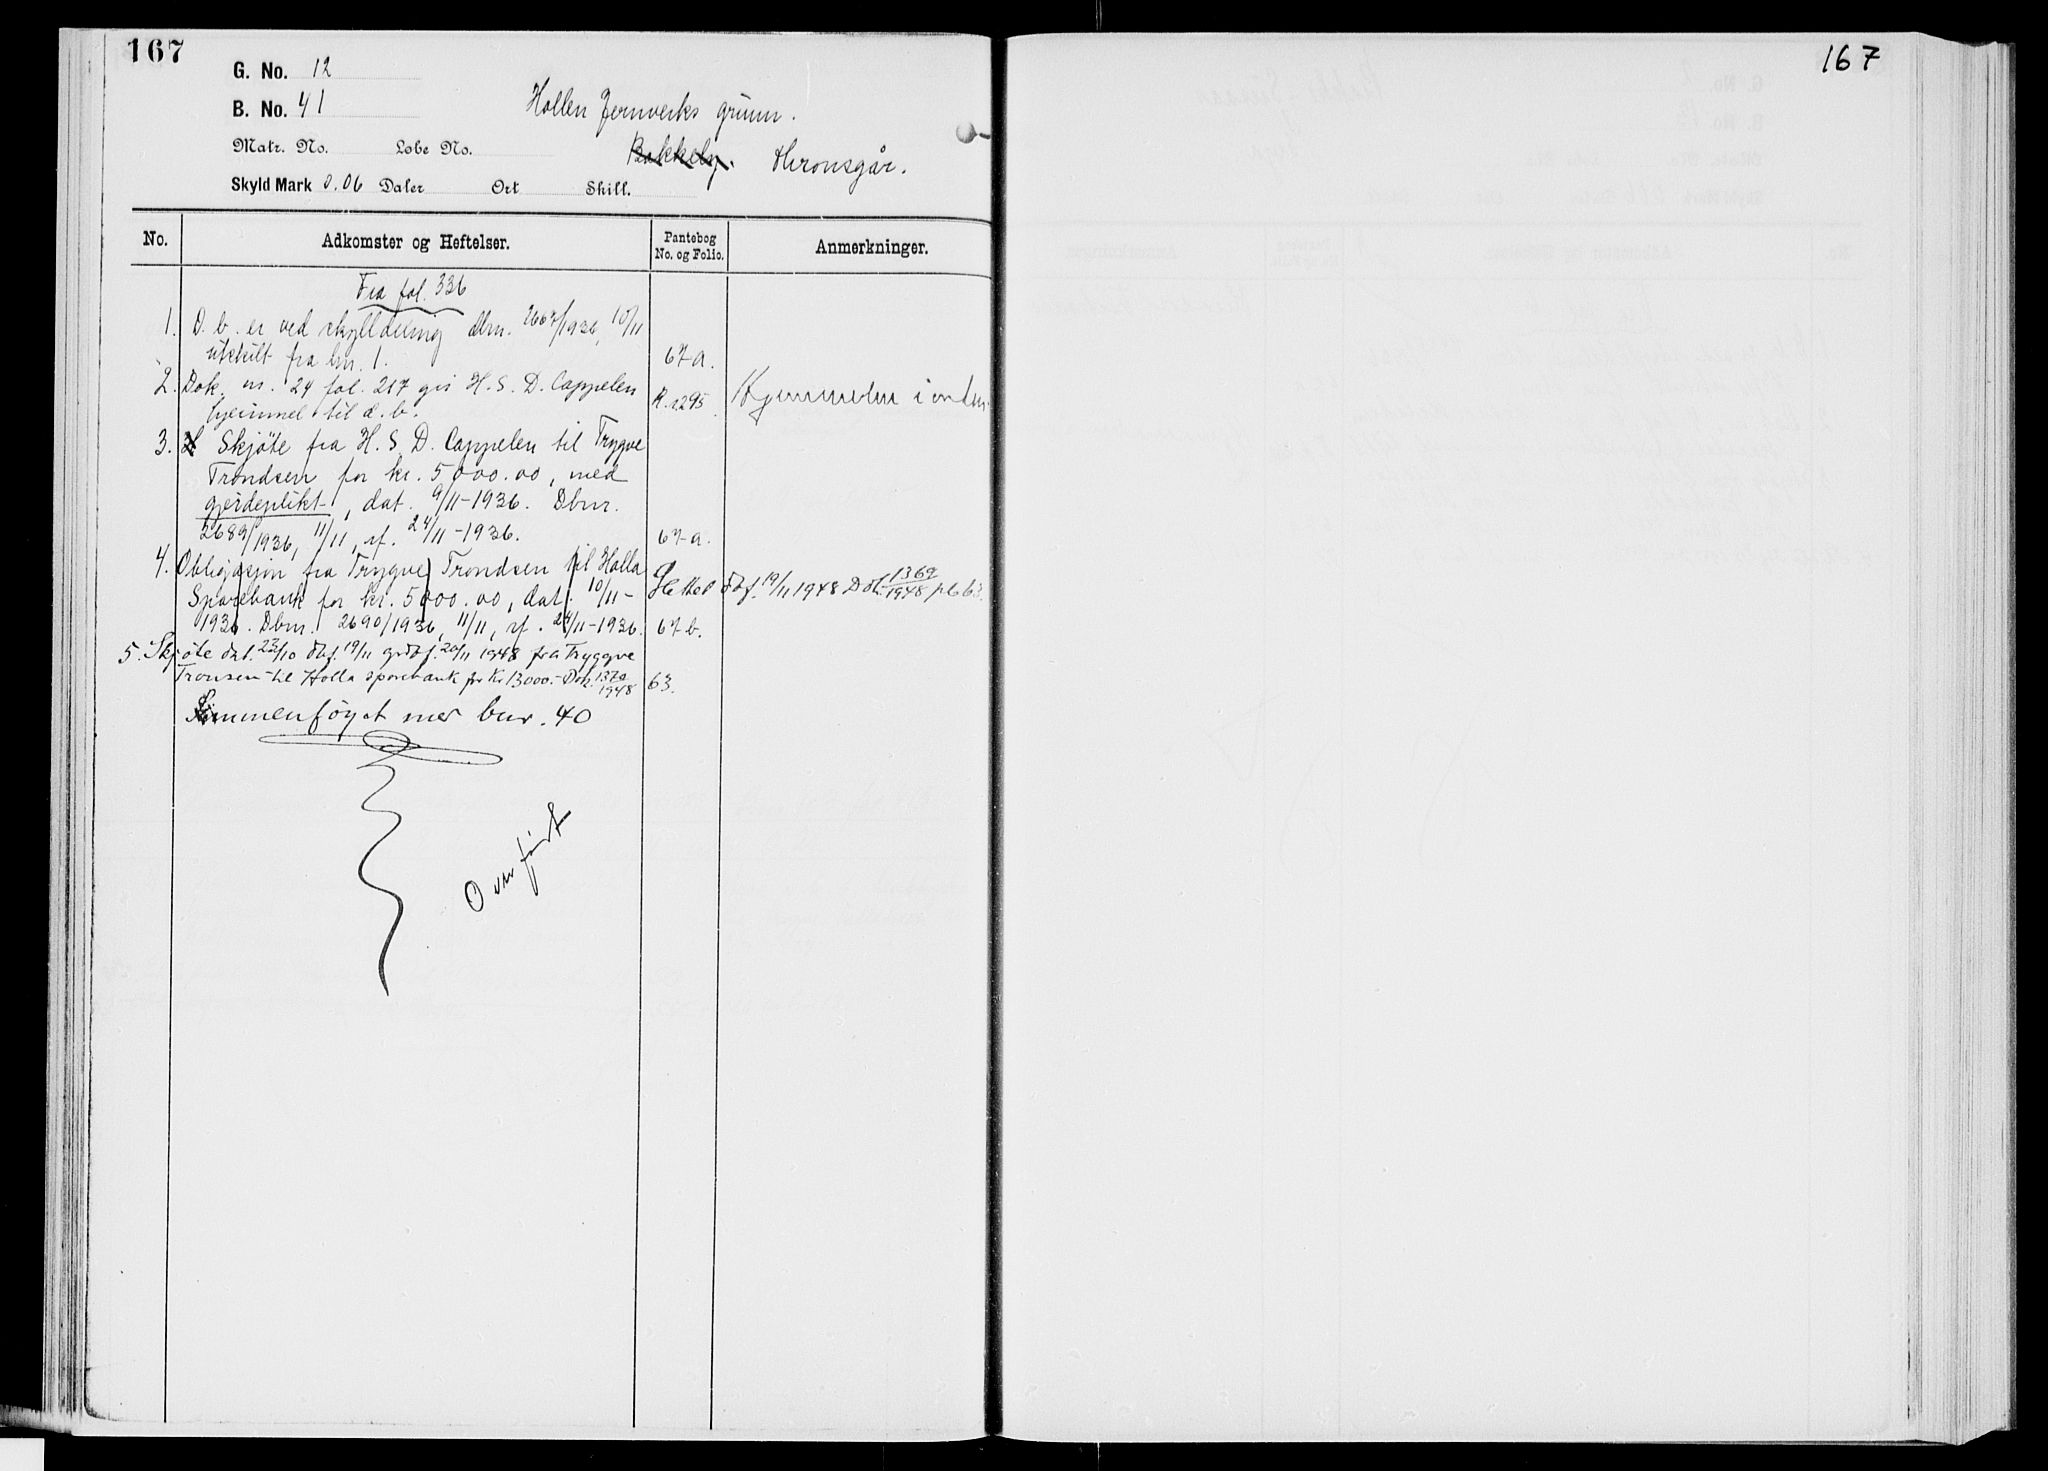 167
G. No. 12
B. No. 41
Hollen Jernverks grunn.
Matr. No. Løbe No.
Bakkely. Thronsgår.
Skyld Mark 0.06 Daler Ort Skill.
No. Adkomster og Heftelser. Pantebog No. og Folio. Anmerkninger.
Fra fol. 336
1. D. b. er ved skylddeling dbnr. 2667/1936, 10/11
utskilt fra bnr. 1. 67a.
2. Dok. nr. 24 fol. 217 gir H. S. D. Cappelen
hjemmel til d. b. R. 295. Hjemmelen i orden.
3. Skjøte fra H. S. D. Cappelen til Trygve
Trondsen for kr. 5000.00, med
gjerdeplikt, dat. 9/11-1936. Dbnr.
2689/1936, 11/11, rf. 24/11-1936. 67a.
4. Obligasjon fra Trygve Trondsen til Holla
Sparebank for kr. 5000.00, dat. 10/11-
1936. Dbnr. 2690/1936, 11/11, rf. 24/11-1936. 67b.
Slettet dbf. 19/11 1948 Dok. 1369/1948 pb 63.
5. Skjøte dat. 23/10 dbf. 19/11 grdbf. 20/11 1948 fra Tryggve
Tronsen til Holla sparebank for Kr 13000.- Dok. 1370/1948 63.
Sammenføyet med bnr. 40
Overført
167